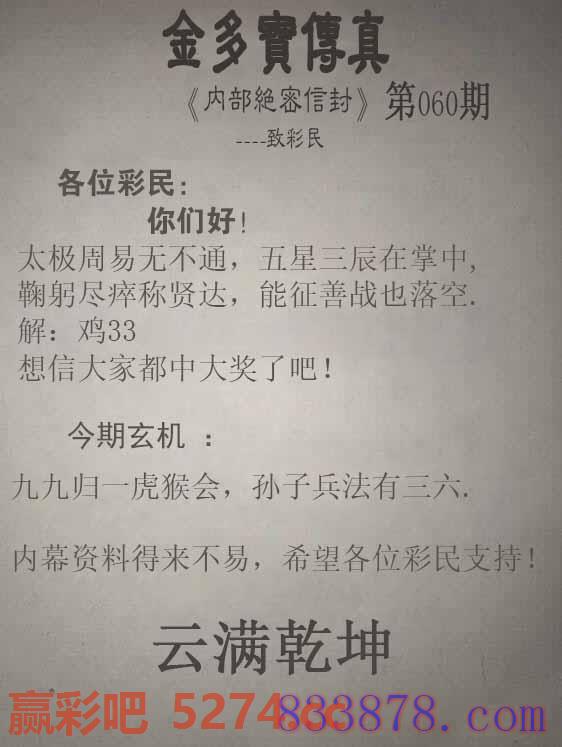 金多寶傳真
《内部絶密信封》第060期
----致彩民
各位彩民:
你们好!
太极周易无不通，五星三辰在掌中,
鞠躬尽瘁称贤达，能征善战也落空.
解：鸡33
想信大家都中大奖了吧!
今期玄机 :
九九归一虎猴会，孙子兵法有三六.
内幕资料得来不易，希望各位彩民支持!
云满乾坤
赢彩吧 5274.cc
833878.com